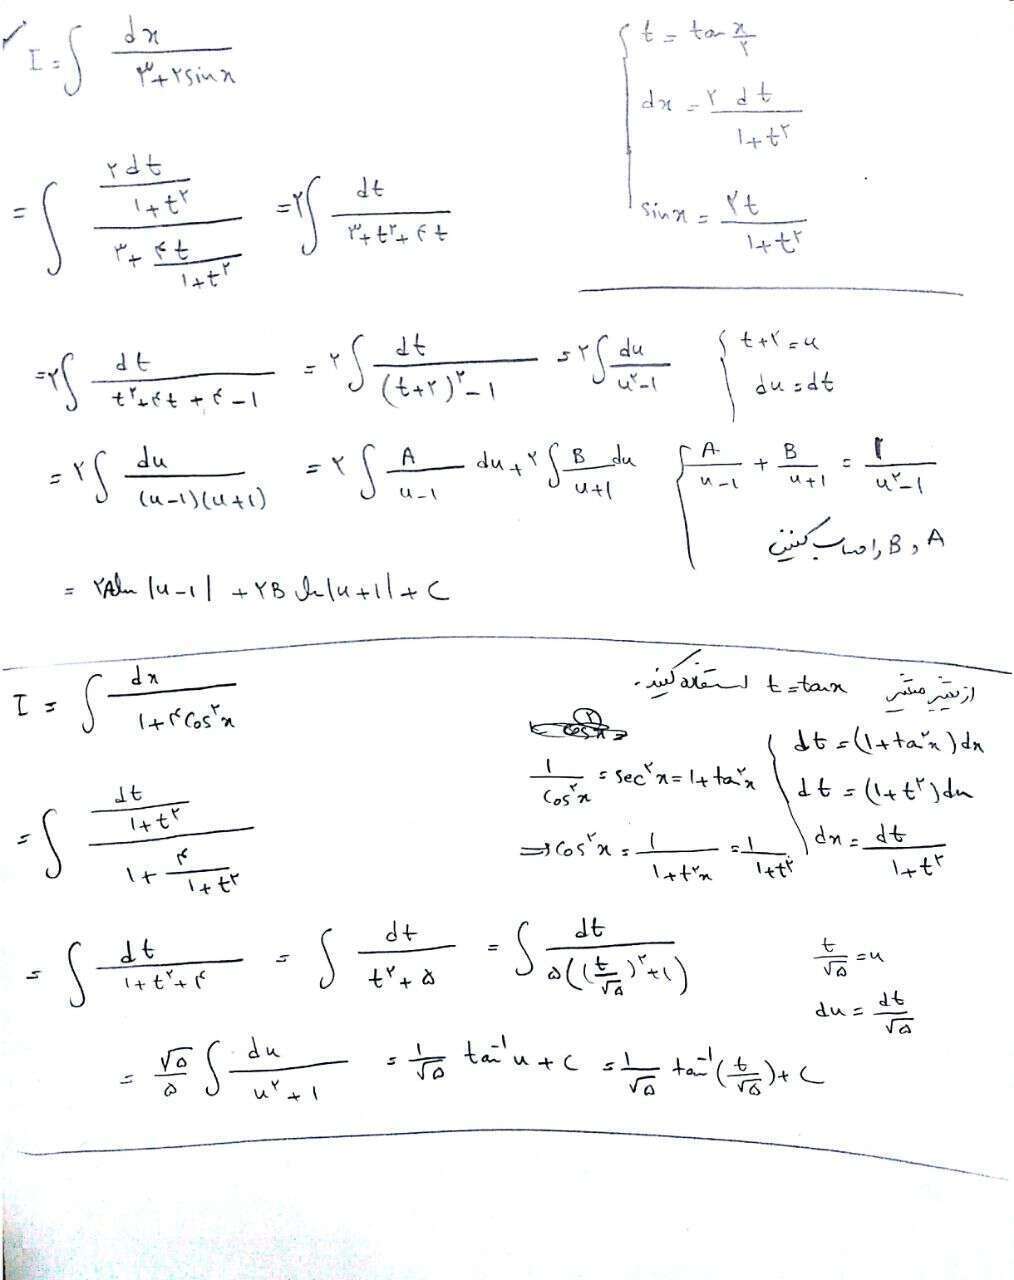 I = ∫ dx / (۳+۲sin x)
{ t = tan x/۲
dx = ۲ dt / (۱+t^۲)
sin x = ۲t / (۱+t^۲)
= ∫ (۲dt / (۱+t^۲)) / (۳ + ۴t / (۱+t^۲)) = ۲∫ dt / (۳+t^۲+۴t)
= ۲∫ dt / (t^۲+۴t+۴-۱) = ۲∫ dt / ((t+۲)^۲-۱) = ۲∫ du / (u^۲-۱)
{ t+۲=u
du=dt
= ۲∫ du / ((u-۱)(u+۱)) = ۲∫ A / (u-۱) du + ۲∫ B / (u+۱) du
{ A / (u-۱) + B / (u+۱) = ۱ / (u^۲-۱)
A و B را حساب کنید
= ۲A ln |u-۱| + ۲B ln |u+۱| + C
I = ∫ dx / (۱+۴cos^۲ x)
از تغییر متغیر t=tan x استفاده کنید.
۱ / cos^۲ x = sec^۲ x = ۱+tan^۲ x
⇒ cos^۲ x = ۱ / (۱+t^۲ x) = ۱ / (۱+t^۲)
{ dt = (۱+tan^۲ x) dx
dt = (۱+t^۲) dx
dx = dt / (۱+t^۲)
= ∫ (dt / (۱+t^۲)) / (۱ + ۴ / (۱+t^۲))
= ∫ dt / (۱+t^۲+۴) = ∫ dt / (t^۲+۵) = ∫ dt / (۵((t/√۵)^۲+۱))
t/√۵ = u
du = dt/√۵
= √۵/۵ ∫ du / (u^۲+۱) = ۱/√۵ tan^-۱ u + C = ۱/√۵ tan^-۱(t/√۵) + C